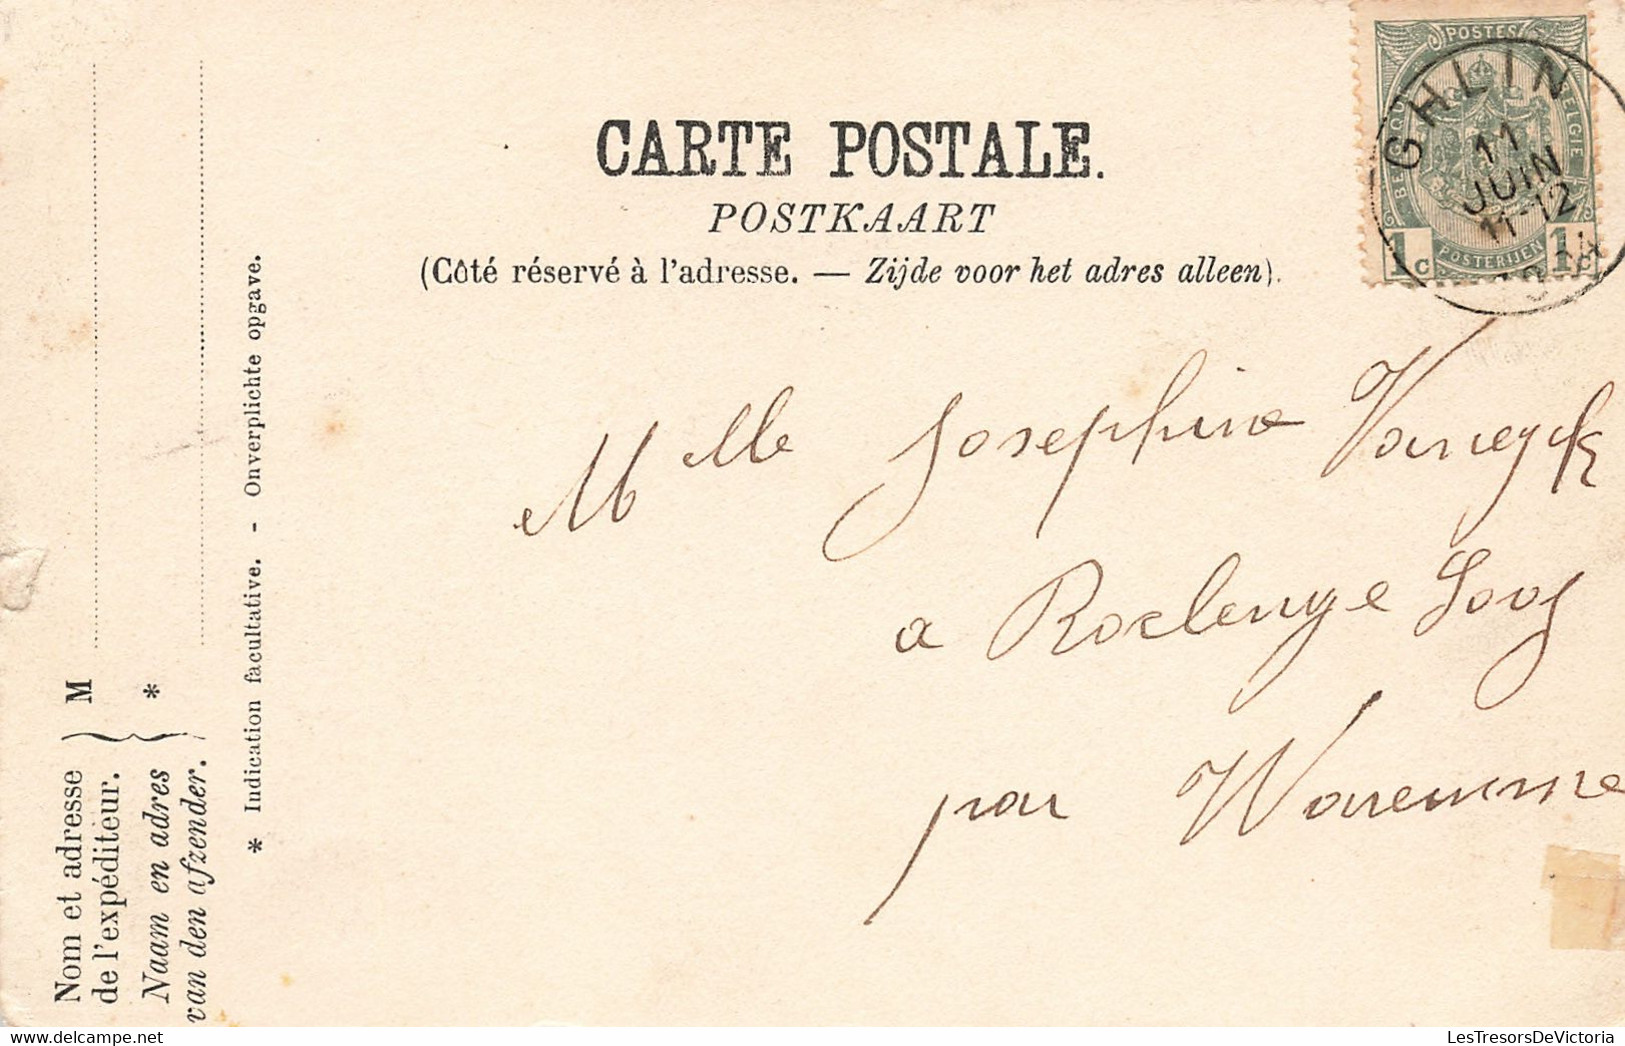 CARTE POSTALE.
POSTKAART
(Côté réservé à l'adresse. — Zijde voor het adres alleen).
POSTES
BELGIQUE
BELGIE
POSTERIJEN
1c
1c
GHLIN
11
JUIN
11-12
Mlle Josephine Vaneyck
a Roclenge Looz
par Waremme
Nom et adresse
de l'expéditeur.
M
Naam en adres
van den afzender.
*
* Indication facultative. - Onverplichte opgave.
LesTresorsDeVictoria